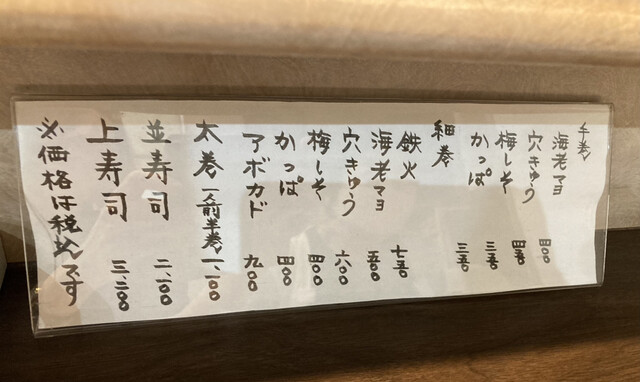 手巻
海老マヨ 四〇〇
穴きゅう 四五〇
梅しそ 三五〇
かっぱ 三五〇
細巻
鉄火 七五〇
海老マヨ 五〇〇
穴きゅう 六〇〇
梅しそ 四〇〇
かっぱ 四〇〇
アボカド 九〇〇
太巻 一人前半巻 一、一〇〇
並寿司 二、二〇〇
上寿司 三、三〇〇
※価格は税込です